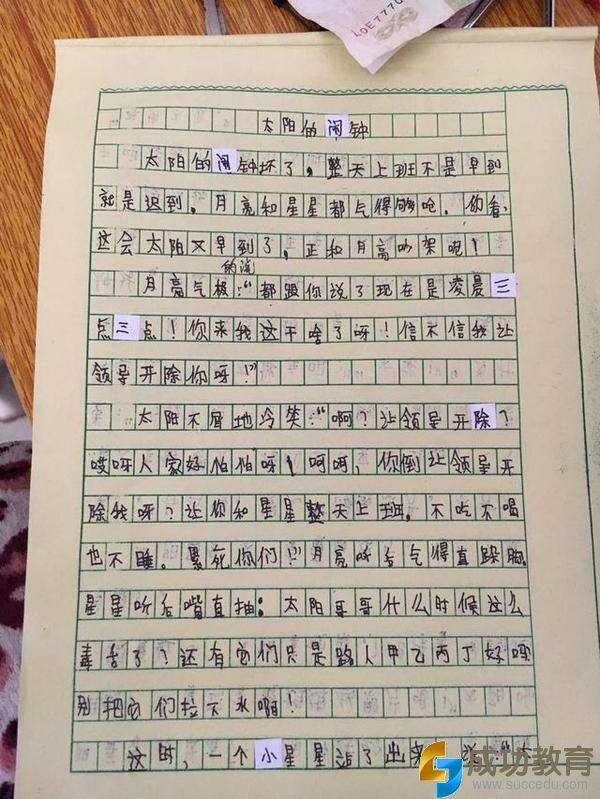 LDE7770
太阳的闹钟
太阳的闹钟坏了，整天上班不是早到
就是迟到。月亮和星星都气得够呛。你看，
这会太阳又早到了，正和月亮吵架呢！
的说
月亮气极：“都跟你说了现在是凌晨三
点三点！你来我这干啥了呀！信不信我让
领导开除你呀！”
太阳不屑地冷笑：“啊？让领导开除？
哎呀人家好怕怕呀！呵呵，你倒让领导开
除我呀？让你和星星整天上班。不吃不喝
也不睡。累死你们！”月亮听后气得直跺脚。
星星听后嘴直抽：太阳哥哥什么时候这么
毒舌了？还有它们只是路人甲乙丙丁好吗
别把它们拉下水啊！
这时，一个小星星站了出来
成功教育
www.succedu.com